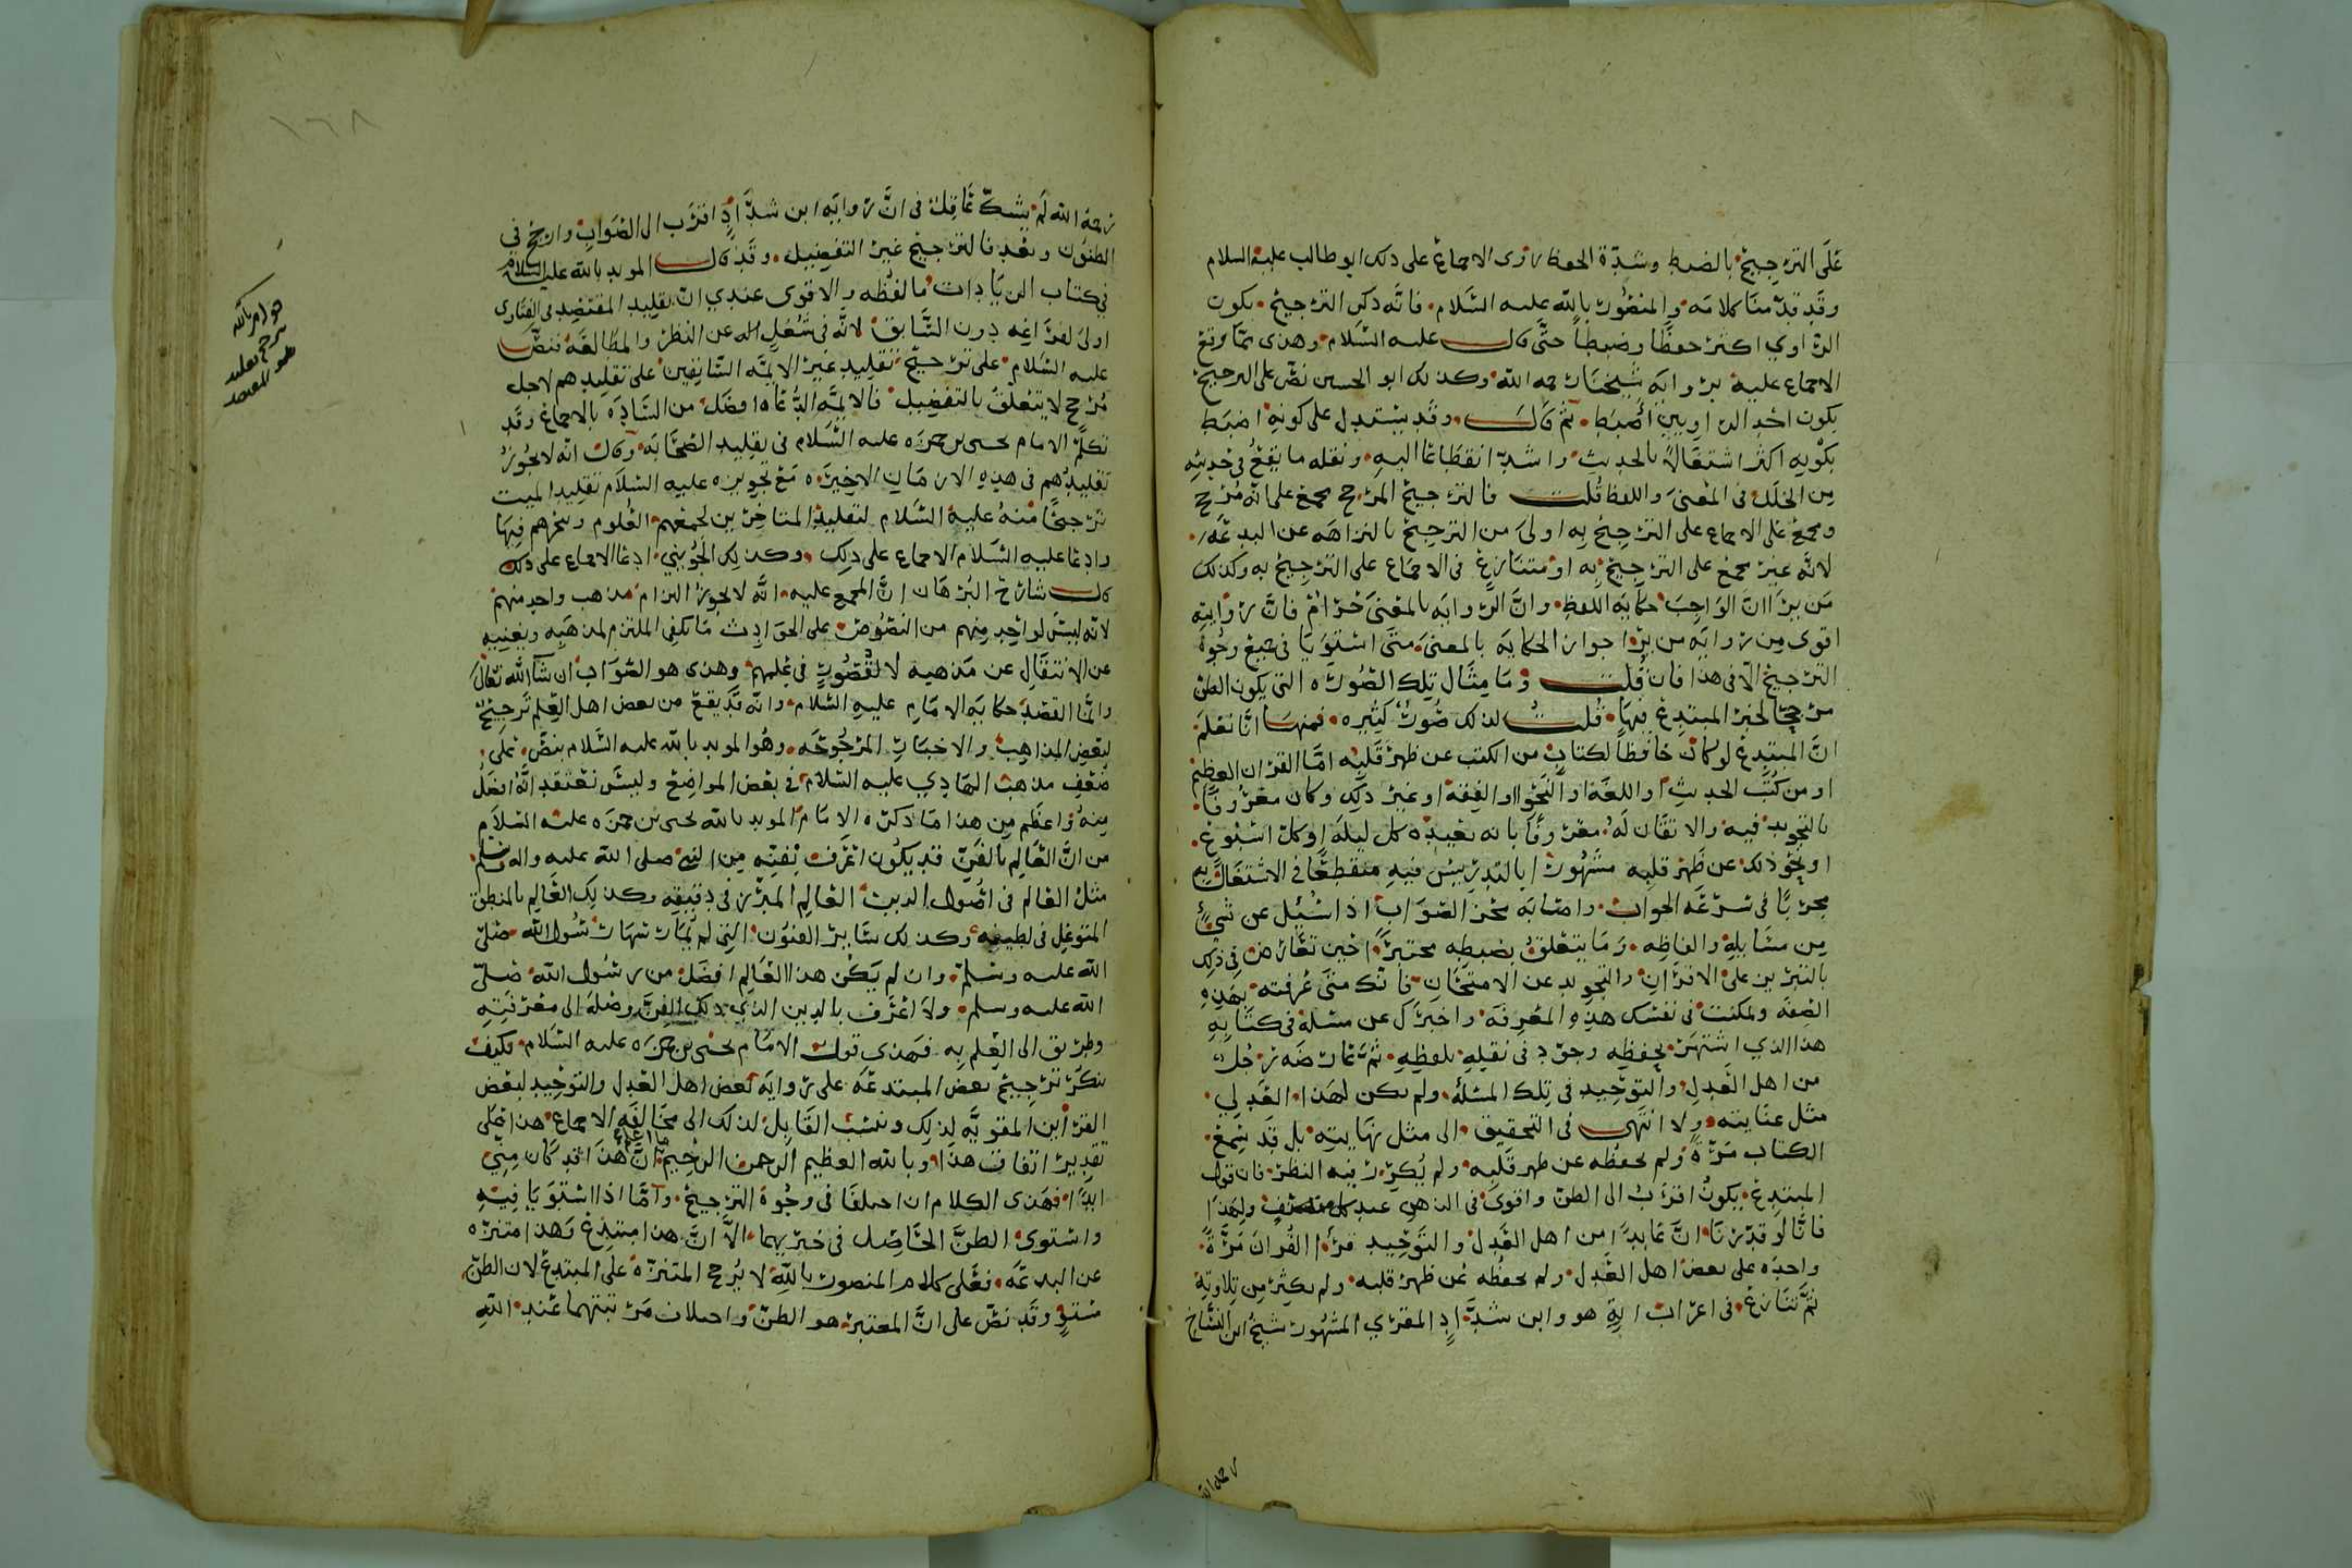 على الترجيح بالضبط وشدة الحفظ روى الاجماع على ذلك ابو طالب عليه السلام
وقد قدمنا كلامه والمنصور بالله عليه السلام فانه ذكر الترجيح بكون
الراوي اكثر حفظا وضبطا حتى قال عليه السلام وهذى مما وقع
الاجماع عليه برواية شيخنا رحمه الله وكذلك ابو الحسين نص على الترجيح
بكون احد الراويين اضبط ثم قال وقد يستدل على كونه اضبط
بكونه اكثر اشتغالا بالحديث واشد انقطاعا اليه ونقله ما يقع في حديثه
من الخلل في المعنى واللفظ قلت فالترجيح المرجح مجمع على انه مرجح
ومجمع على الاجماع على الترجيح به اولى من الترجيح بالنزاهه عن البدعه
لانه غير مجمع على الترجيح به او متنازع في الاجماع على الترجيح به وكذلك
من يرا ان الواجب حكاية اللفظ وان الروايه بالمعنى حرام فان روايته
اقوى من رواية من يرا جواز الحكايه بالمعنى متى استويا في جميع وجوه
الترجيح الا في هذا فان قلت وما مثال تلك الصوره التي يكون الظن
مرجحا لخبر المبتدع فيها قلت لذلك صور كثيره فمنها انا نعلم
ان المبتدع لو كان حافظا لكتاب من الكتب عن ظهر قلبه اما القران العظيم
او من كتب الحديث او اللغة او النحو او الفقه او غير ذلك وكان معروفا
بالتجويد فيه والاتقان له معروفا بانه يعيده كل ليلة او كل اسبوع
او نحو ذلك عن ظهر قلبه مشهورا بالتدريس فيه منقطعا في الاشتغال به
مجربا في سرعه الجواب واصابه الصواب اذا سئل عن شيء
من مسايله والفاظه وما يتعلق بضبطه مختبرا حين تعارض في ذلك
بالتبريز على الاقران والتجويد عن الامتحان فانك متى عرفته بهذه
الصفه وتمكنت في نفسك هذه المعرفه واخبرك عن مسئلة في كتابه
هذا الذي اشتهر بحفظه وجود في نقله بلفظه ثم عارضه رجل
من اهل العدل والتوحيد في تلك المسئله ولم يكن لهذا العدلي
مثل عنايته ولا انتهى في التحقيق الى مثل نهايته بل قد سمع
الكتاب مرة ولم يحفظه عن ظهر قلبه ولم يكرر فيه النظر فان قول
المبتدع يكون اقرب الى الظن واقوى في الذهن عند كل منصف ولهذا
فانا لو قدرنا ان عابدا من اهل العدل والتوحيد قرا القران مرة
واحده على بعض اهل العدل ولم يحفظه عن ظهر قلبه ولم يكثر من تلاوته
ثم تنازع في اعراب اية هو وابن شداد المقري المشهور شيخ ابن النساخ
رحمه الله
رحمه الله لم يشك عاقل في ان رواية ابن شداد اقرب الى الصواب وارجح في
الظنون وبعد فالترجيح غير التفضيل وقد قال المويد بالله عليه السلام
في كتاب الزيادات ما لفظه والاقوى عندي ان تقليد المقتصد في الفتاوى
اولى لفراغه دون السابق لانه في شغل اله عن النظر والمطالعه فنص
عليه السلام على ترجيح تقليد غير الايمه السابقين على تقليدهم لاجل
مرجح لا يتعلق بالتفضيل فالايمه الدعاه افضل من الساده بالاجماع وقد
تكلم الامام يحيى بن حمزه عليه السلام في تقليد الصحابه وقال انه لا يجوز
تقليدهم في هذه الازمان الاخيره مع تجويزه عليه السلام تقليد الميت
ترجيحا منه عليه السلام لتقليد المتاخرين لجمعهم العلوم وتبحرهم فيها
وادعا عليه السلام الاجماع على ذلك وكذلك الجويني ادعا الاجماع على ذلك
قال شارح البرهان ان المجمع عليه انه لا يجوز التزام مذهب واحد منهم
لانه ليس لواحد منهم من النصوص على الحوادث ما يكفي الملتزم لمذهبه ويغنيه
عن الانتقال عن مذهبه لا لقصور في علمهم وهذى هو الصواب ان شاء الله تعالى
وانما القصد حكاية الامام عليه السلام وانه قد يقع من بعض اهل العلم ترجيح
لبعض المذاهب والاخبار المرجوحه وهو المويد بالله عليه السلام بنص على
ضعف مذهب الهادي عليه السلام في بعض المواضع وليس نعتقد انه افضل
منه واعظم من هذا ما ذكره الامام المويد بالله يحيى بن حمزه عليه السلام
من ان العالم بالفن قد يكون اعرف بفنه من النبي صلى الله عليه واله وسلم
مثل العالم في اصول الدين العالم المبرز في دقيقه وكذلك العالم بالمنطق
المتوغل في لطيفه وكذلك ساير الفنون التي لم يمارسها رسول الله صلى
الله عليه وسلم وان لم يكن هذا العالم افضل من رسول الله صلى
الله عليه وسلم ولا اعرف بالدين الذي ذلك الفن وصله الى معرفته
وطريق الى العلم به فهذى قول الامام يحيى بن حمزه عليه السلام فكيف
ينكر ترجيح بعض المبتدعه على رواية بعض اهل العدل والتوحيد لبعض
القراين المقويه لذلك وينسب القايل لذلك الى مخالفه الاجماع هذا على
تقدير اتفاق هذا وبالله العظيم الرحمن الرحيم ما اعلم ان هذا قد كان مني
ابدا فهذى الكلام ان اختلفا في وجوه الترجيح واما اذا استويا فيه
واستوى الظن الحاصل في خبريهما الا ان هذا مبتدع وهذا متنزه
عن البدعه فعلى كلام المنصور بالله لا يرجح المتنزه على المبتدع لان الظن
مستو وقد نص على ان المعتبر هو الظن واختلاف مرتبتهما عند الله
١٦٨